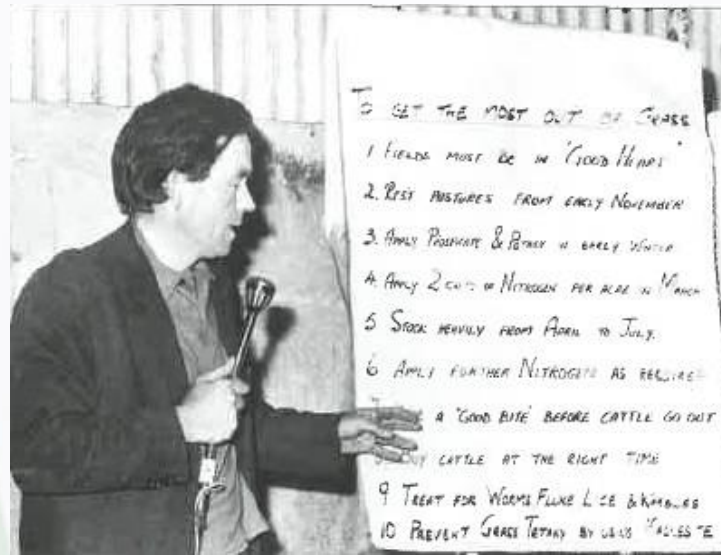 TO GET THE MOST OUT OF GRASS
1 FIELDS MUST BE IN 'GOOD HEART'
2. REST PASTURES FROM EARLY NOVEMBER
3. APPLY PHOSPHATE & POTASH IN EARLY WINTER
4. APPLY 2 CWTS OF NITROGEN PER ACRE IN MARCH
5 STOCK HEAVILY FROM APRIL TO JULY.
6 APPLY FURTHER NITROGEN AS REQUIRED
A 'GOOD BITE' BEFORE CATTLE GO OUT
BUY CATTLE AT THE RIGHT TIME
9 TREAT FOR WORMS FLUKE LICE &
10 PREVENT GRASS TETANY BY USING